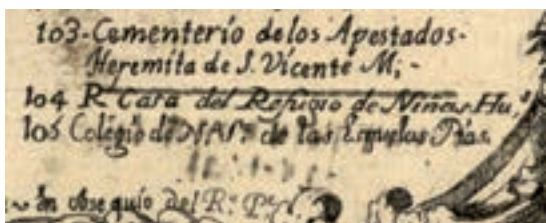 103-Cementerío delos Apestados-
Heremíta de S. Vícenté M,-
104 R Casa del Refugio de Niñas Hu,s
105 Colégío de de las Esquelas Pías.
En obsequío del R.